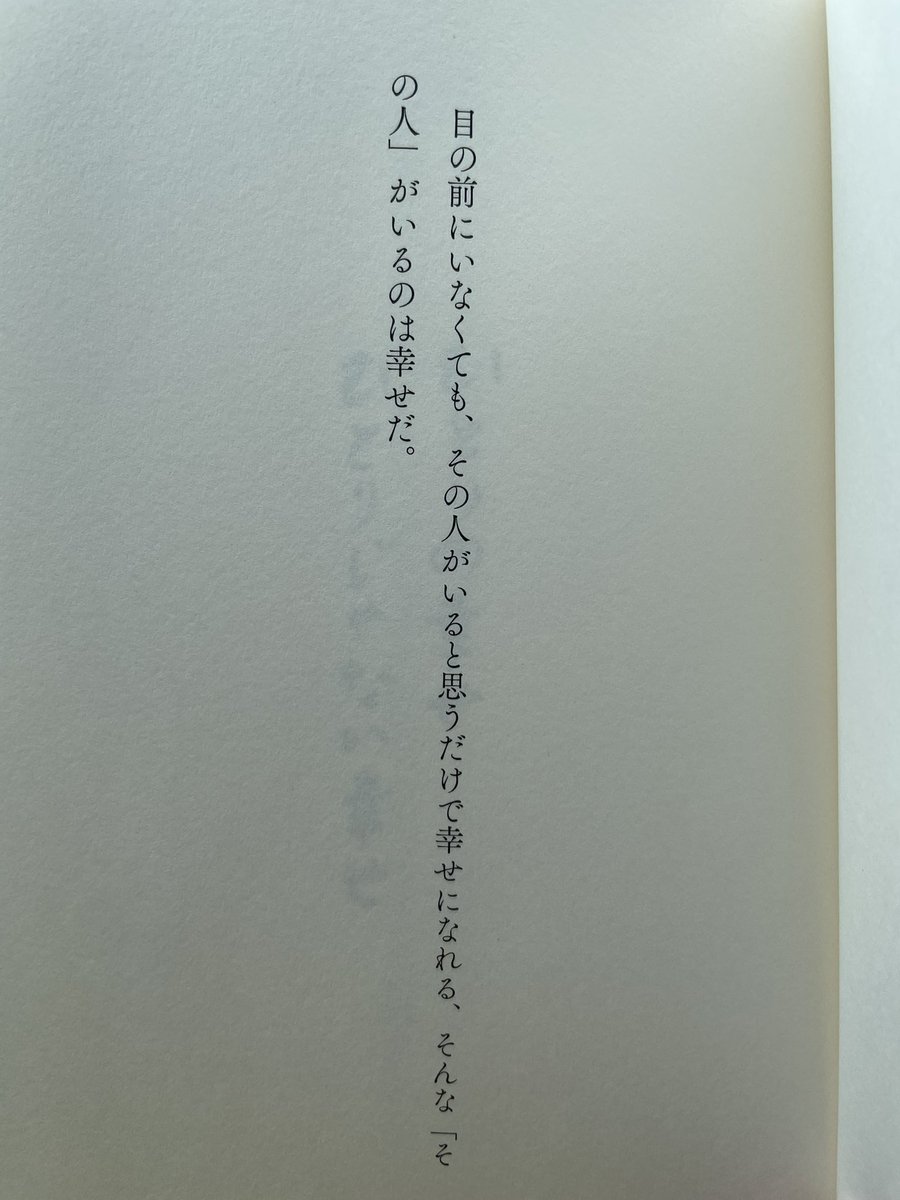 目の前にいなくても、その人がいると思うだけで幸せになれる、そんな「そ
の人」がいるのは幸せだ。